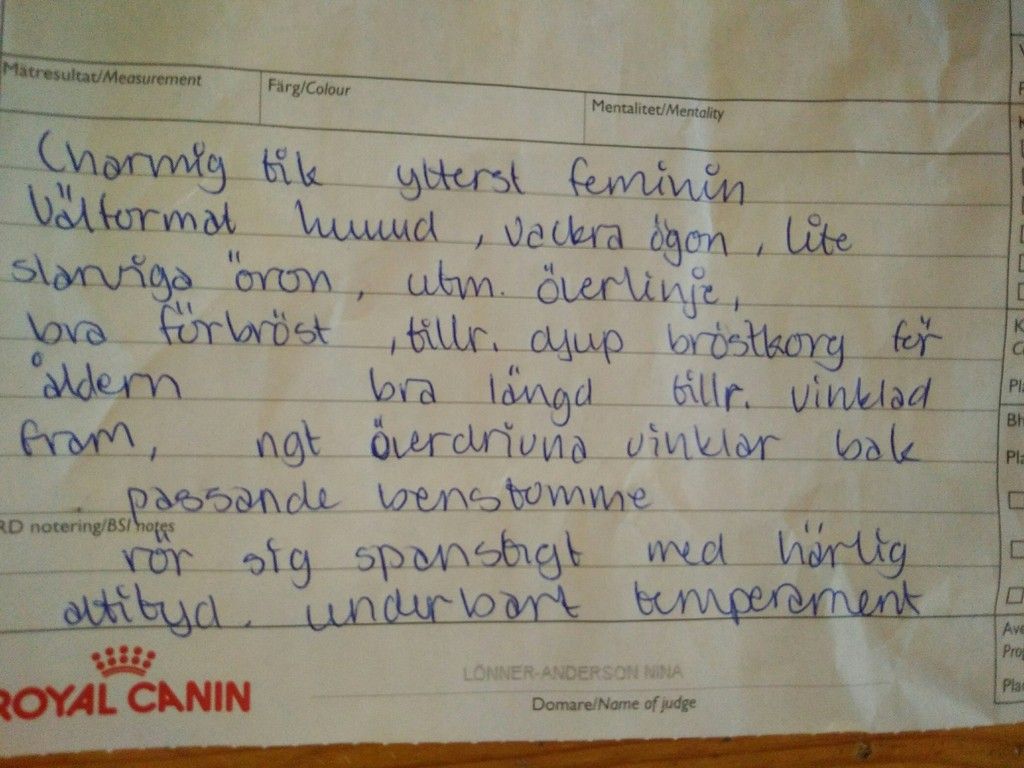 Mätresultat/Measurement
Färg/Colour
Mentalitet/Mentality
Charmig tik ytterst feminin
Välformat huvud, vackra ögon, lite
slarviga öron, utm. överlinje,
bra förbröst, tillr. djup bröstkorg för
åldern bra längd tillr. vinklad
fram, ngt överdrivna vinklar bak
passande benstomme
RD notering/BSI notes
rör sig spänstigt med härlig
attityd. underbart temperament
ROYAL CANIN
LÖNNER-ANDERSON NINA
Domare/Name of judge